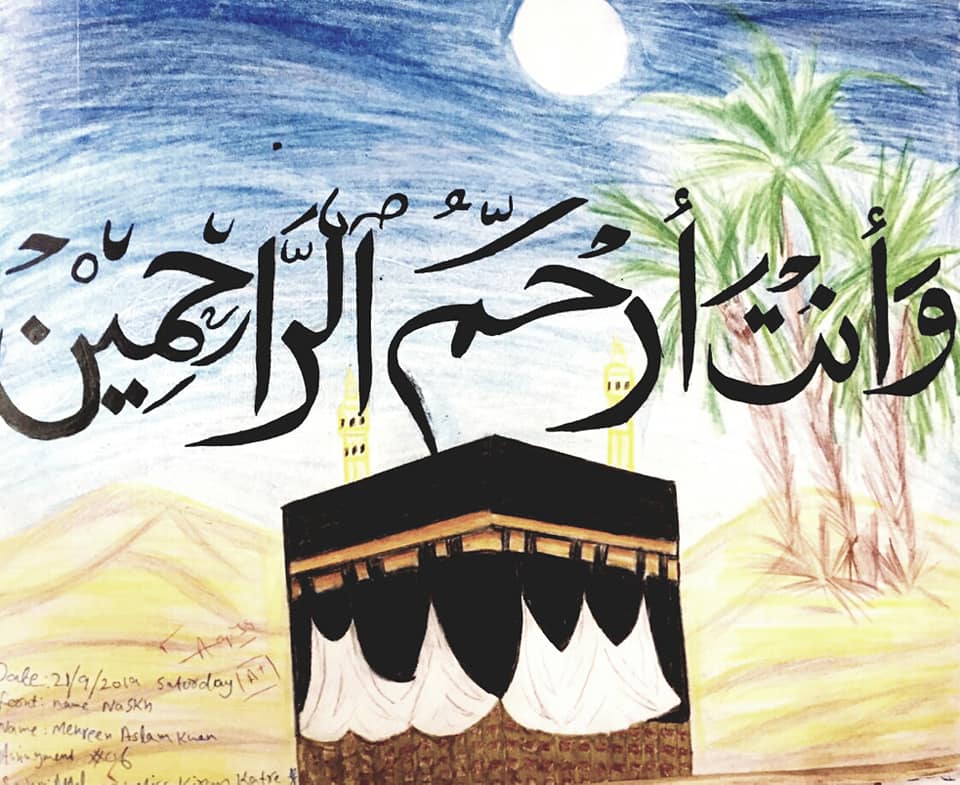 وَأَنْتَ أَرْحَمُ الرَّاحِمِيْنَ
A+
Date: 21/9/2019 Saturday
foont: name Naskh
Name: Mehreen Aslam Khan
Assingment #96
Miss Kiran